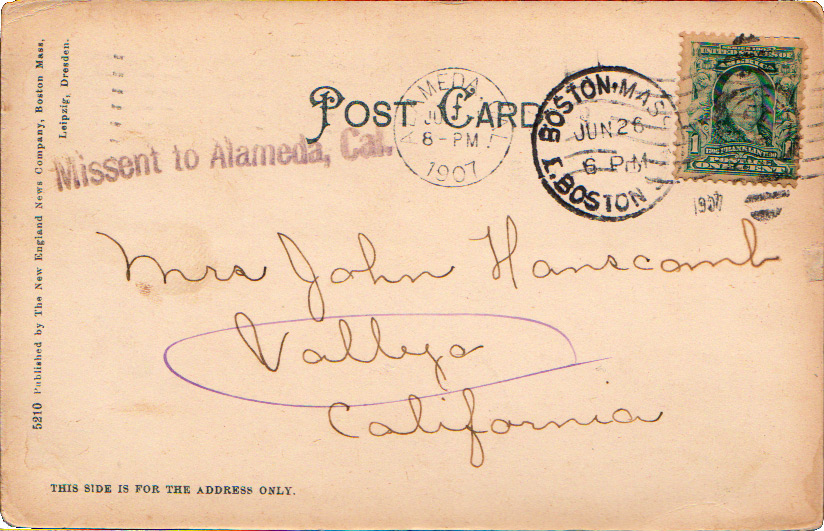 5210 Published by The New England News Company, Boston Mass,
Leipzig, Dresden.
POST CARD
Missent to Alameda, Cal.
ALAMEDA,
8-PM
1907
BOSTON, MASS
JUN 26
6 PM
E. BOSTON
1907
SERIES 1902
FRANKLIN
ONE CENT
Mrs John Hanscomb
Vallejo
California
THIS SIDE IS FOR THE ADDRESS ONLY.